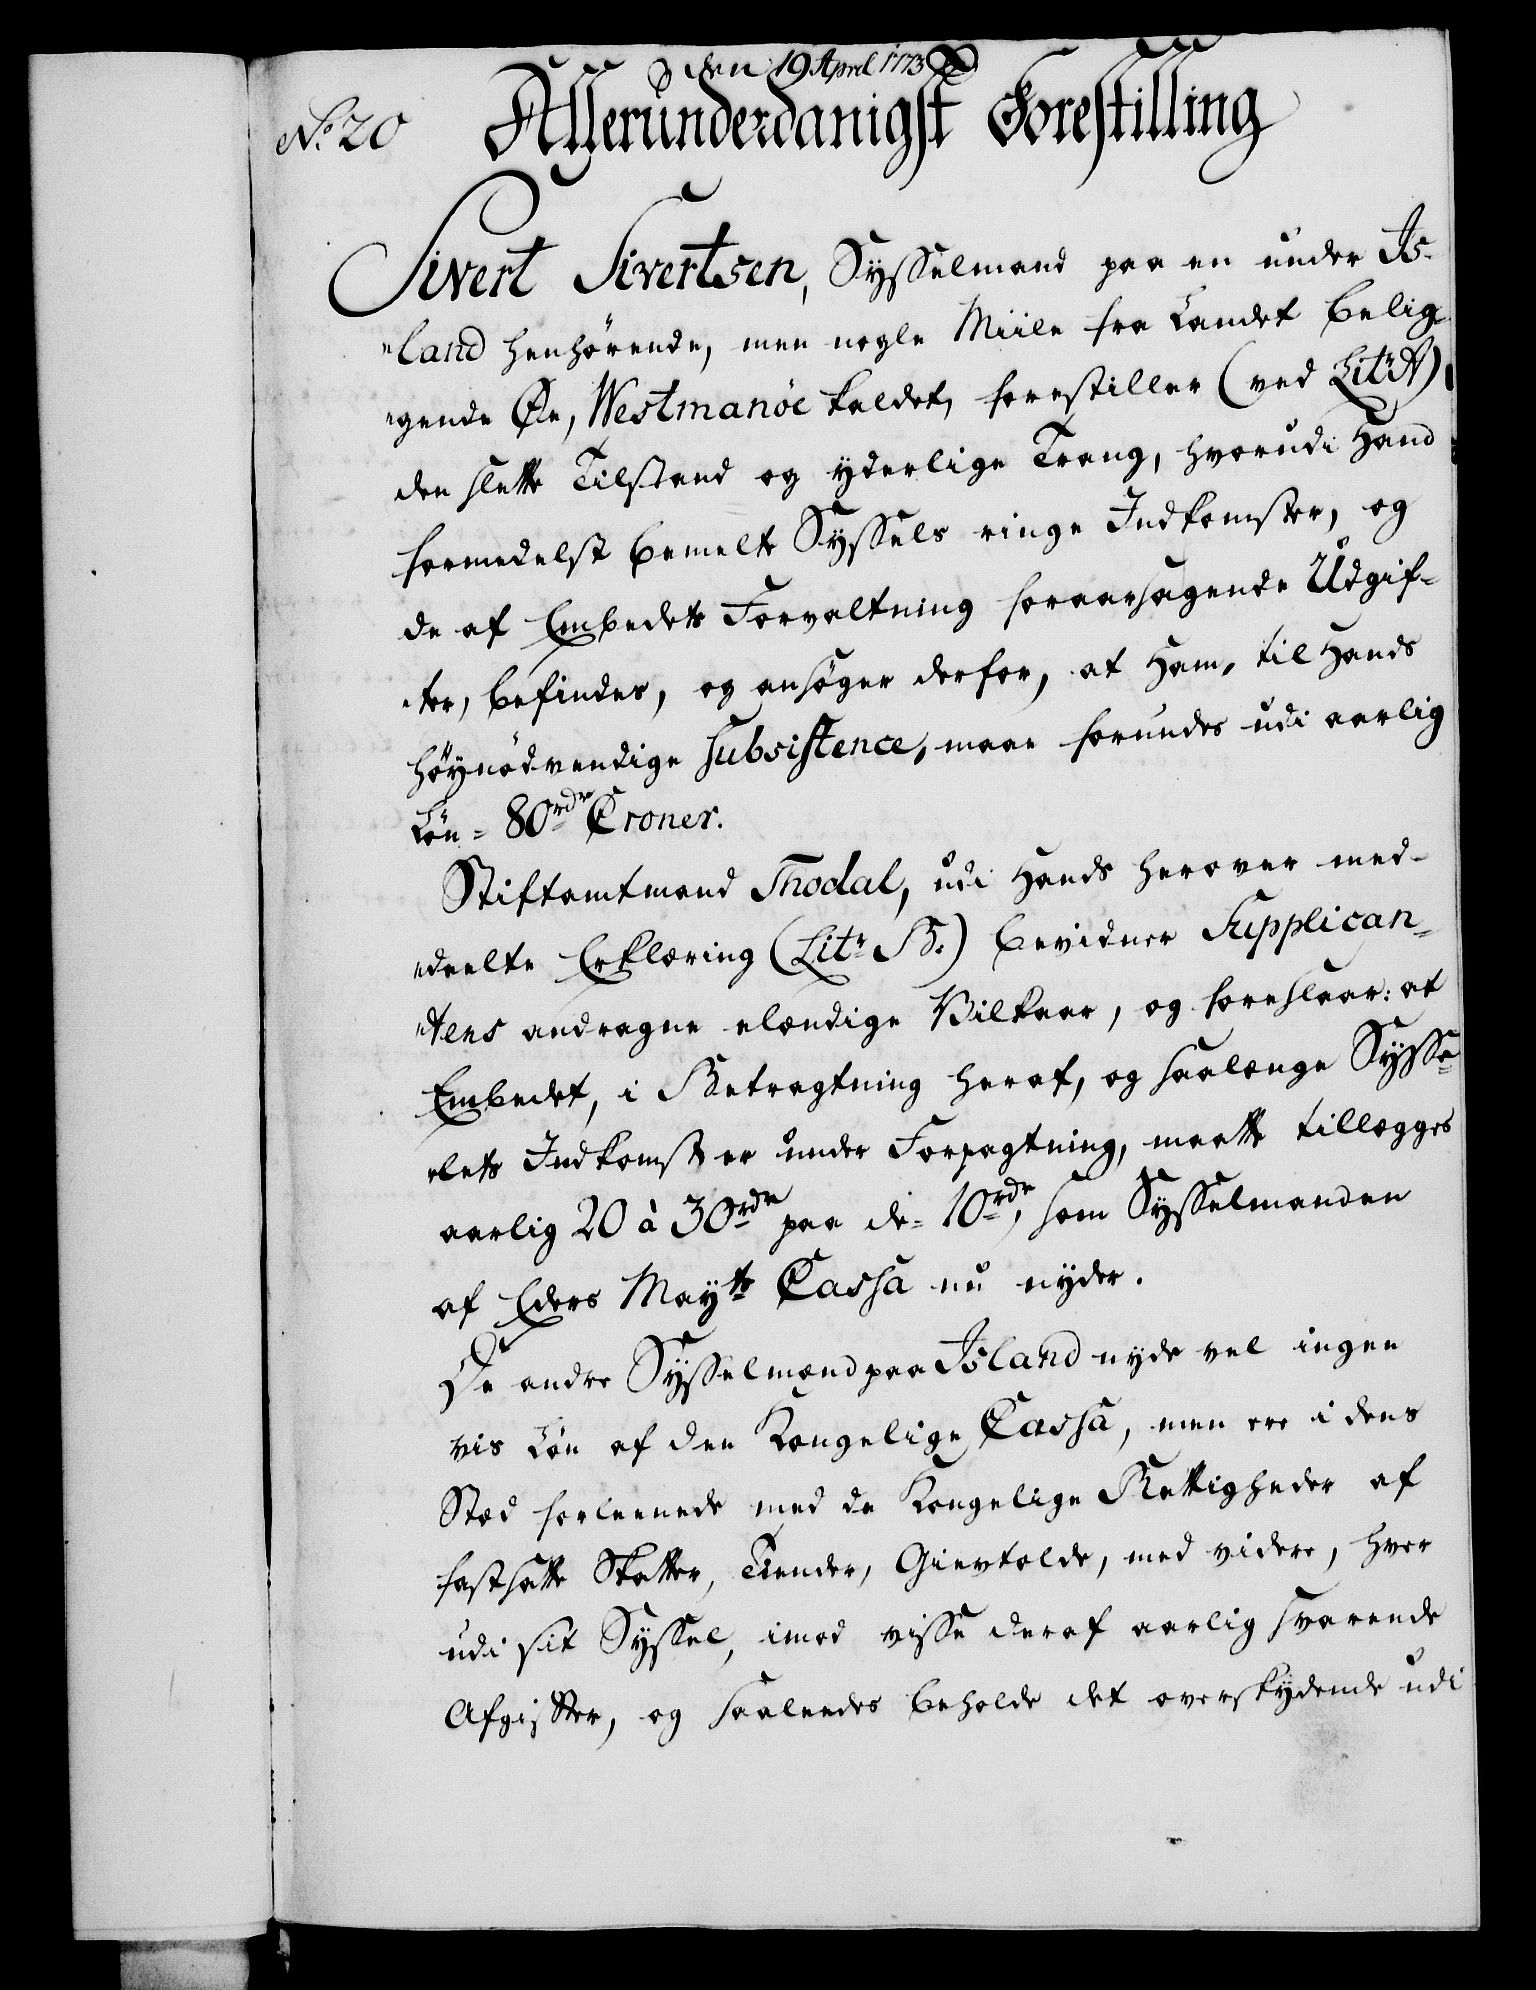 den 19 April 1773
No 20 Allerunderdanigst Forestilling
Sivert Sivertsen, Sysselmand paa en under Is-
"land henhørende, men nogle Miile fra Landet belig-
"gende Øe, Westmanöe kaldet, forestiller (ved Litr A)
den slette Tilstand og yderlige Trang, hvorudi Hand
formedelst bemelte Syssels ringe Indkomster, og
de af Embedets Forvaltning foraarsagende Udgif-
"ter, befindes, og ansøger derfor, at Ham, til Hands
høynødvendige Subsistence, maae forundes udi aarlig
Løn = 80 rdr Croner.
Stiftamtmand Thodal, udi Hands herover med-
"deelte Erklæring (Litr B.) bevidner Supplican-
"tens andragne elændige Vilkaar, og foreslaar: at
Embedet, i Betragtning heraf, og saalænge Sysse-
"lets Indkomst er under Forpagtning, maatte tillægges
aarlig 20 à 30 rdr paa de = 10 rdr, som Sysselmanden
af Eders Maytts Cassa nu nyder.
De andre Sysselmænd paa Island nyde vel ingen
vis Løn af den Kongelige Cassa, men ere i dens
Stæd forleenede med de Kongelige Rettigheder af
fastsatte Skatter, Tiender, Gievtolde, med videre, hver
udi sit Syssel, imod visse deraf aarlig svarende
Afgifter, og saaleedes beholde det overskydende udi